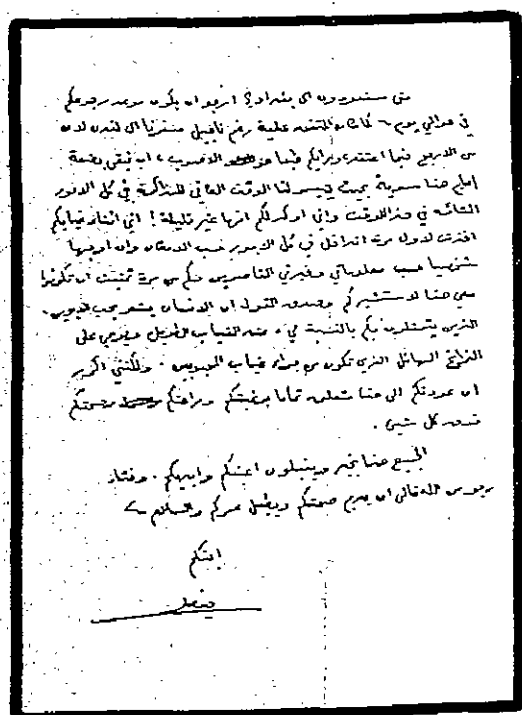 متى ستعودون الى بغداد؟ ارجو ان يكون موعد رجوعكم
في حوالي يوم ٦ كما كان المتفق عليه رغم تأجيل سفرنا الى لندن لان
من الارجح فيما اعتقد، ورأيكم فيما هو الاصوب، ان نبقى بضعة
ايام هنا سوية بحيث يتيسر لنا الوقت الكافي للمذاكرة في كل الامور
الشائكة في هذا الوقت واني اؤكد لكم انها غير قليلة! اني اثناء غيابكم
اخذت لاول مرة اتداخل في كل الامور حسب الامكان وان اوجهها
شخصيا حسب معلوماتي وخبرتي القاصرين وكم من مرة تمنيت ان تكونوا
معي هنا لاستشيركم وصدق القول ان الانسان يشعر بحب المحبوبين
الذين يتمثلون بكم بالنسبة لي، عند الغياب الطويل على
الفراغ الهائل الذي تكون من جراء غياب المحبوبين. ولكنني اكرر
ان عودتكم الى هنا تتعلق تماما برغبتكم وراحتكم وصحتكم
فوق كل شيء.
الجميع هنا بخير ويقبلون اعينكم وايديكم. وختاما
ارجو من الله تعالى ان يديم صحتكم ويطيل عمركم والسلام
ابنكم
فيصل